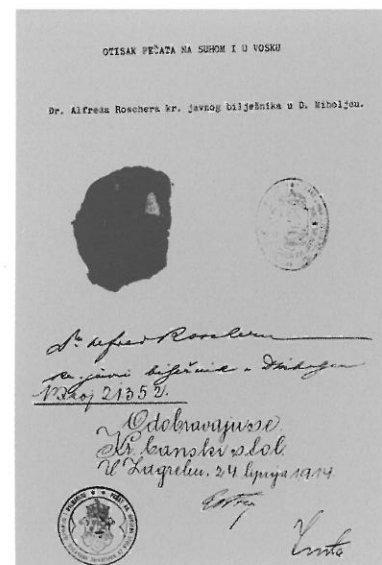 OTISAK PEČATA NA SUHOM I U VOSKU
Dr. Alfreda Roschera kr. javnog bilježnika u D. Miholjcu.
Dr Alfred Roscher
kr. javni bilježnik u
Broj 21352.
Odobravaju se.
Kr. banski stol.
U Zagrebu, 24 lipnja 1914.